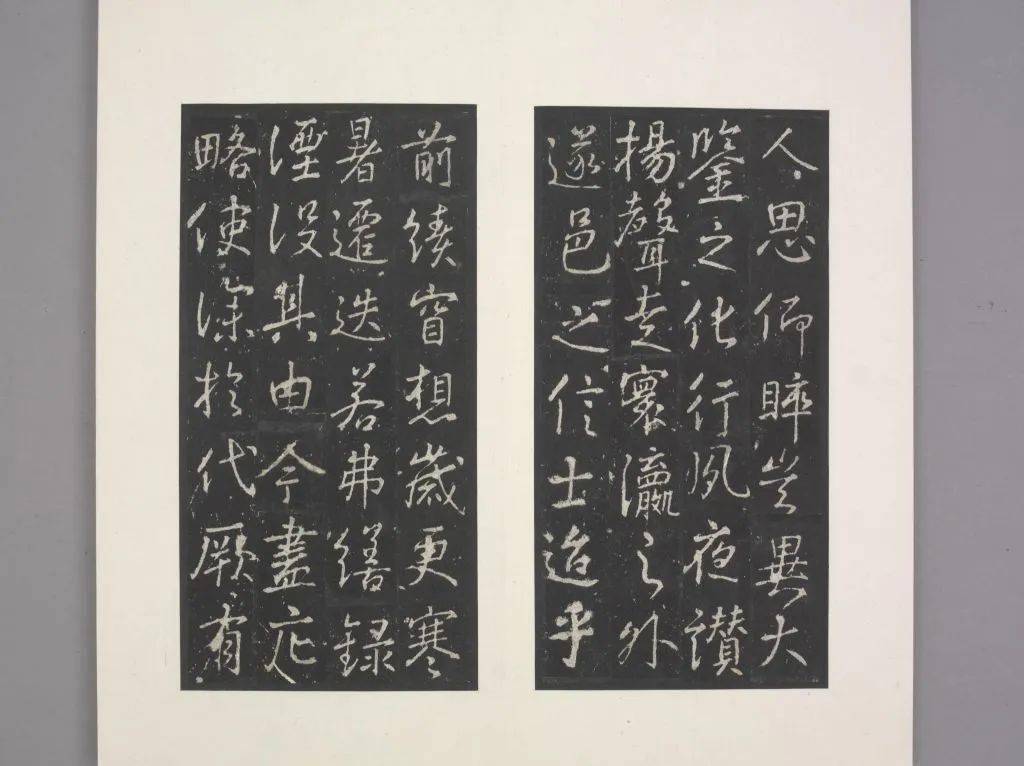 人思仰睟豈異大
鑒之化行夙夜讚
揚聲走寰瀛之外
遂邑之信士迨乎
前績窅想歲更寒
暑遷迭若弗繕錄
湮没其由今盡
略使深於代厥有